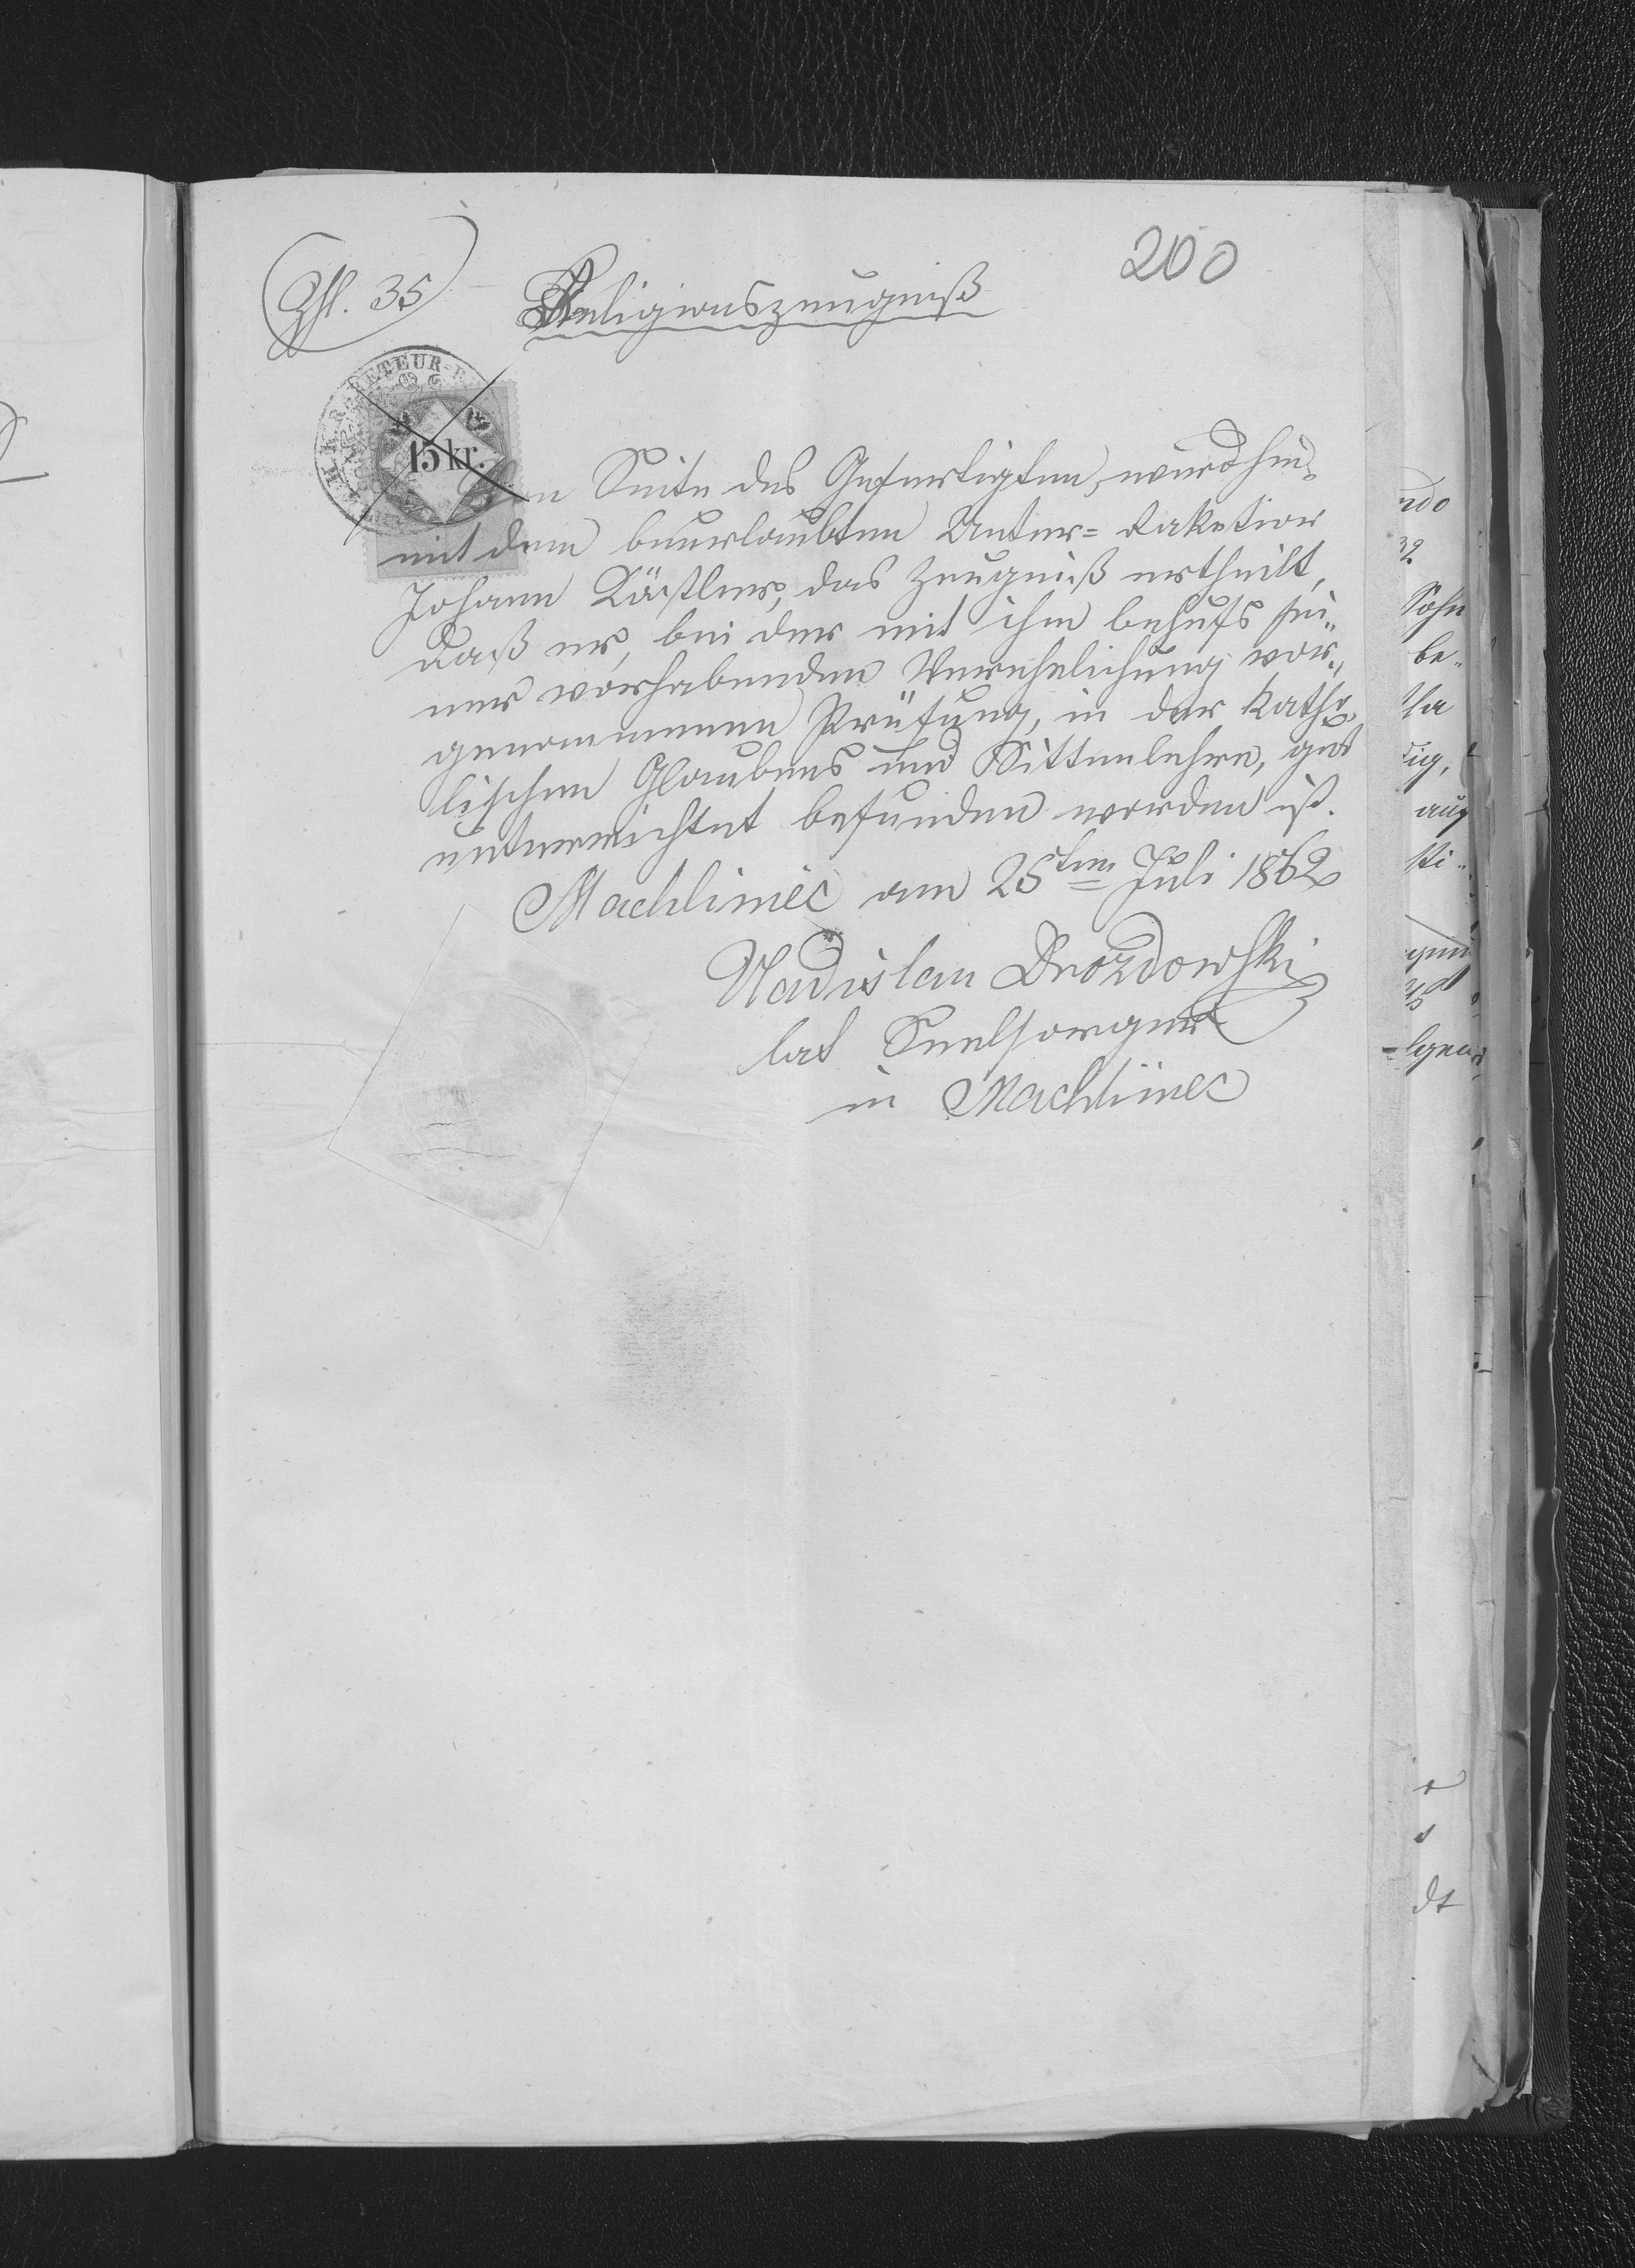 Zl. 35
200
Religionszeugniß
15 kr.
Seite des Gefertigten, wird hie-
mit dem beurlaubten Unter= Raketior
Johann Köstler, das Zeugniß ertheilt,
daß er, bei der mit ihm behufs sei-
ner vorhabenden Verehelichung vor-
genommenen Prüfung, in der katho-
lischen Glaubens und Sittenlehre, gut
unterrichtet befunden worden ist.
Machliniec am 25ten Juli 1862
Vladislau Drozdowski
lat Seelsorger
in Machliniec
Sohn
be-
ig,
dt